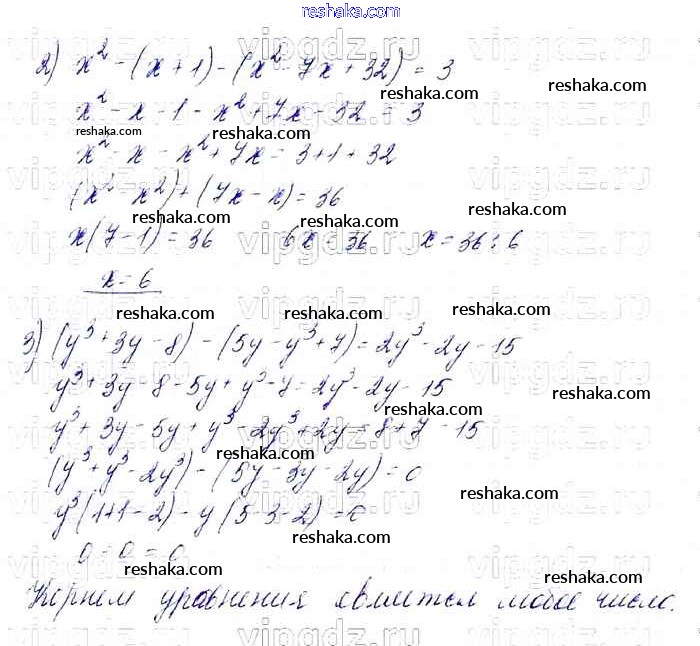 reshaka.com
2) x² - (x + 1) - (x² - 7x + 32) = 3
x² - x - 1 - x² + 7x - 32 = 3
x² - x - x² + 7x = 3 + 1 + 32
(x² - x²) + (7x - x) = 36
x(7 - 1) = 36 6x = 36 x = 36 : 6
x = 6
3) (y³ + 3y - 8) - (5y - y³ + 7) = 2y³ - 2y - 15
y³ + 3y - 8 - 5y + y³ - 7 = 2y³ - 2y - 15
y³ + 3y - 5y + y³ - 2y³ + 2y = 8 + 7 - 15
(y³ + y³ - 2y³) - (5y - 3y - 2y) = 0
y³(1+1-2) - y(5-3-2) = 0
0 - 0 = 0
Корнем уравнения является любое число.